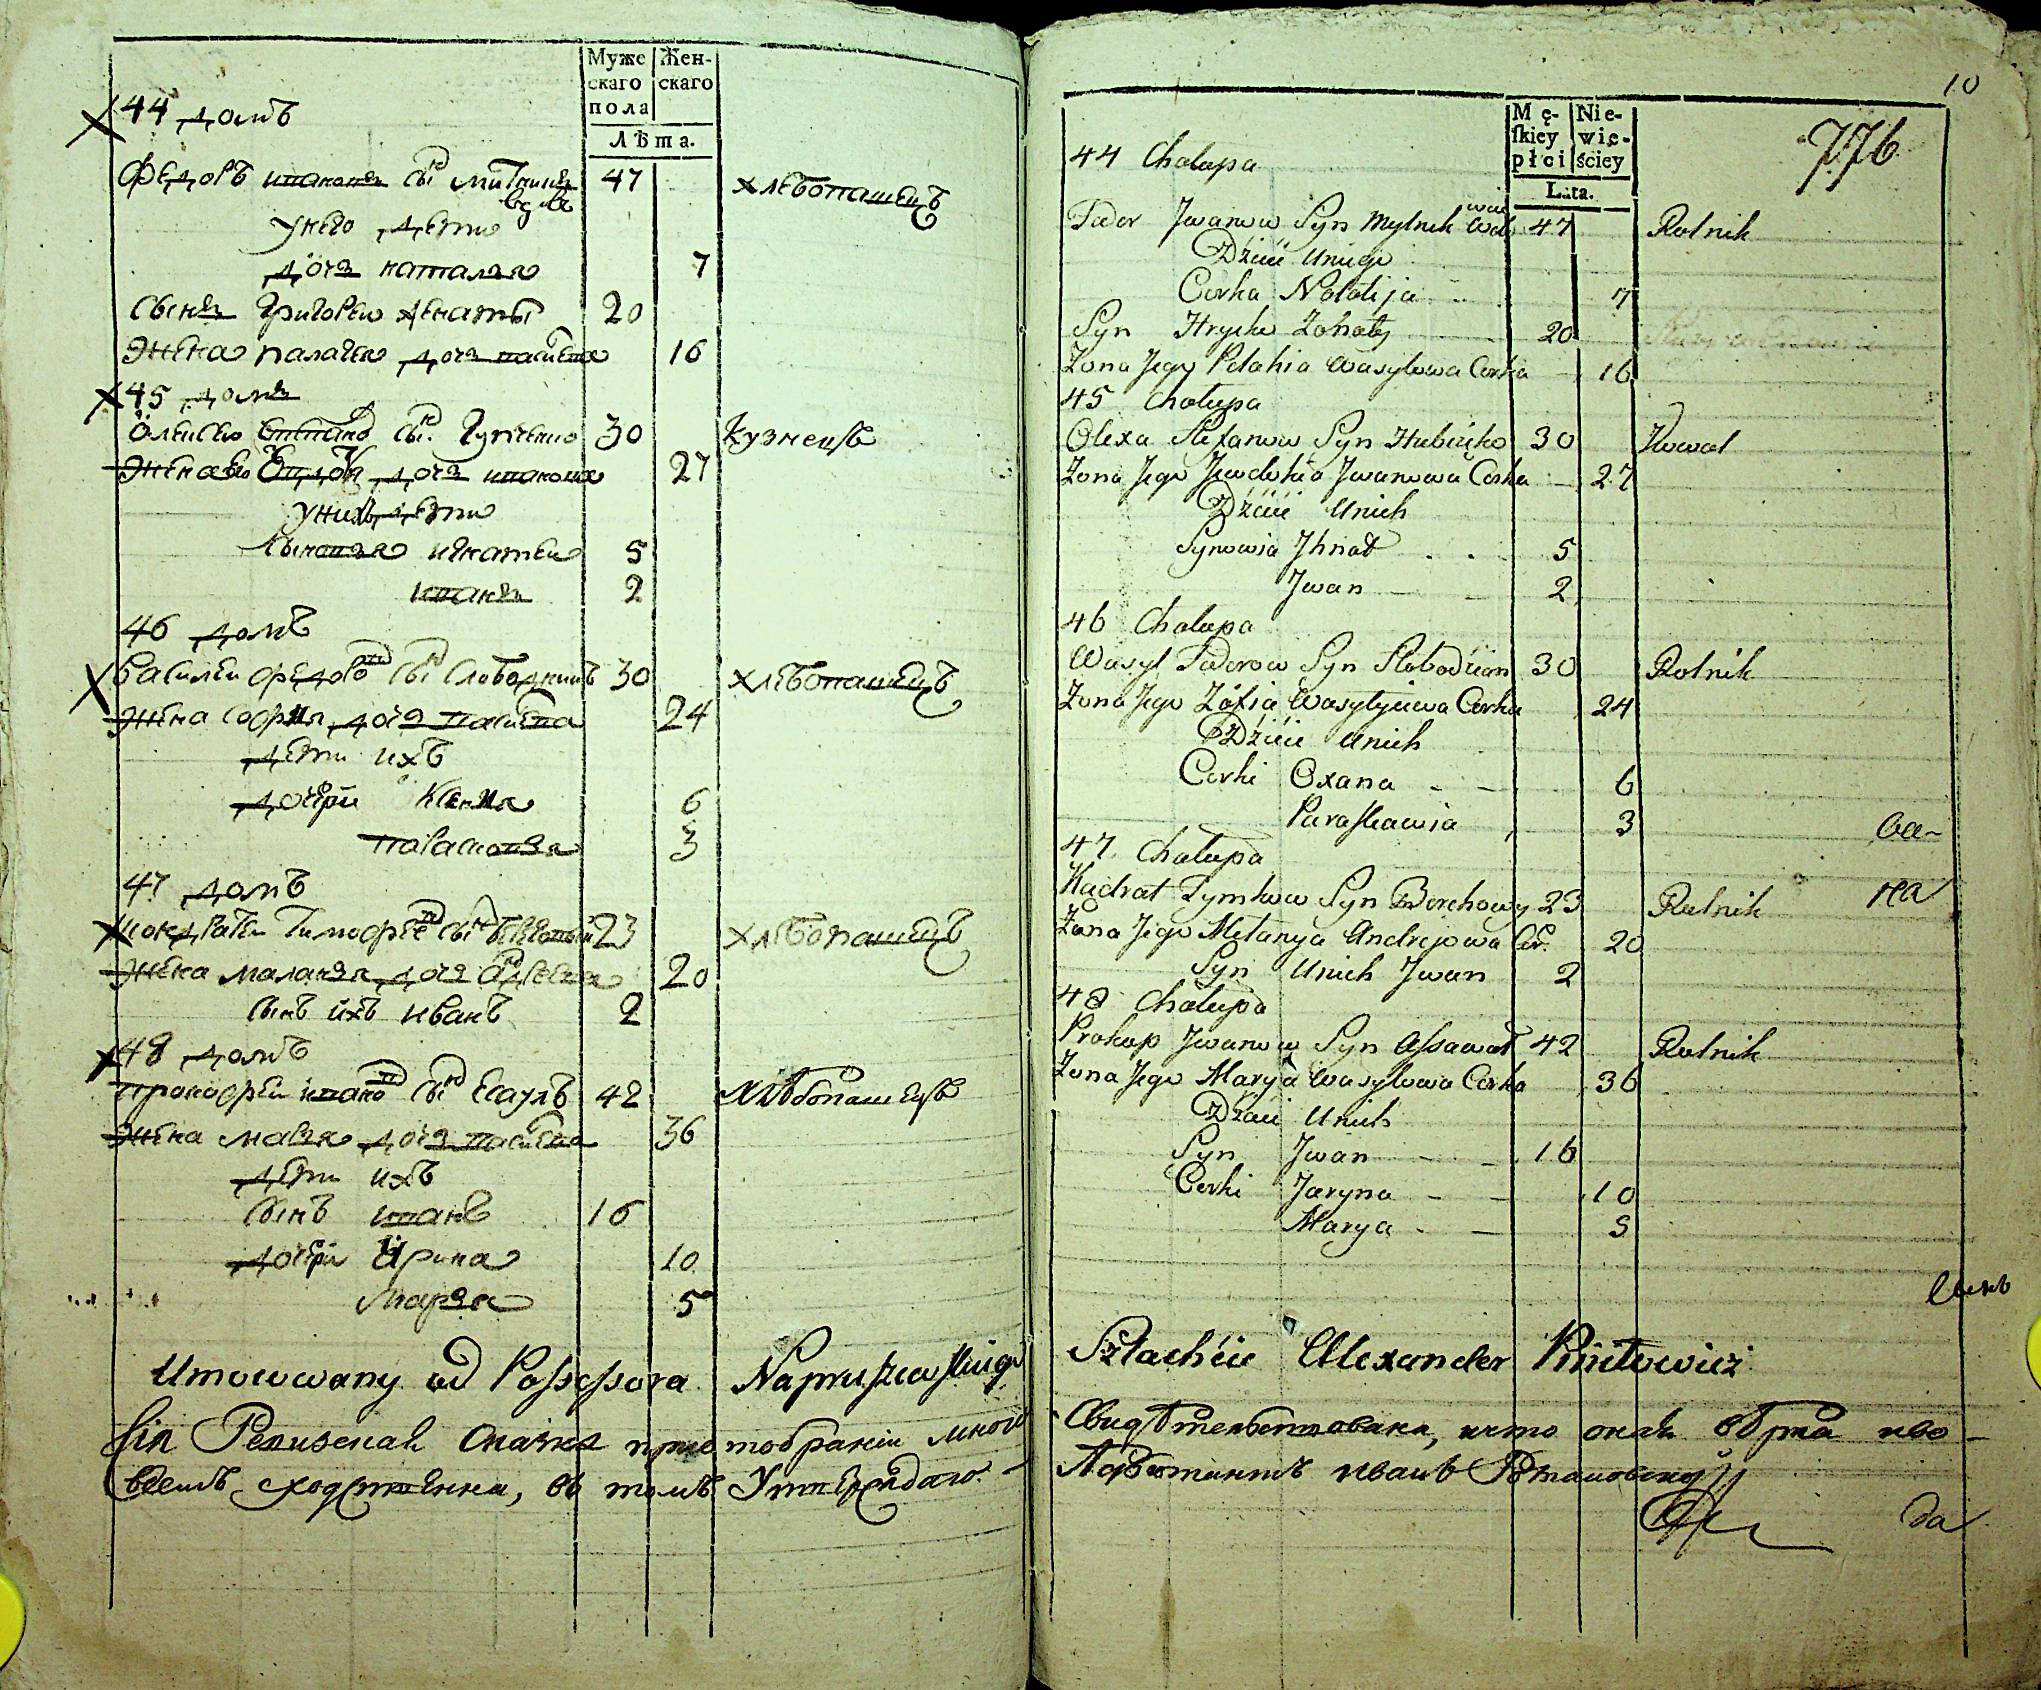 Муже Жен-
скаго скаго
пола
Лѣта.
44 домъ
Федоръ ивановъ сынъ митникъ 47 хлебопашецъ
вдовъ
у него дети
дочь наталья 7
сынъ григореи женаты 20
жена палагея дочь василева 16
45 домъ
Олексеи степановъ сынъ 30 Кузнецъ
жена его Евдокия дочь иванова 27
у нихъ дети
сыновья игнатеи 5
иванъ 2
46 домъ
Василеи федоровъ сынъ слободянинъ 30 хлебопашецъ
жена софия дочь василева 24
дети ихъ
дочери Ксения 6
парасковья 3
47 домъ
кондратеи тимофеевъ сынъ 23 хлебопашецъ
жена маланья дочь андреева 20
сынъ ихъ иванъ 2
48 домъ
прокофеи ивановъ сынъ Есаулъ 42 хлѣбопашецъ
жена марья дочь василева 36
дети ихъ
сынъ иванъ 16
дочери Ирина 10
Марья 5
Umocowany od Possessora
сходственна, въ томъ Утверждаю
10
776
Mę- Nie-
ſkiey wię-
płci ściey
Lata.
44 Chalupa
Fedor Jwanow Syn Mylnik 47 Rolnik
Dzieci Uniego
Corka Natalija 7
Syn Hryćko Żonaty 20
Żona Jego Pelahia Wasylowa Corka 16
45 Chalupa
Olexa Stefanow Syn Hubieńko 30 Kowal
Żona Jego Jewdokia Jwanowa Corka 27
Dzieci Unich
Synowia Jhnat 5
Jwan 2
46 Chalupa
Wasyl Fedorow Syn Slobodzian 30 Rolnik
Żona Jego Zofia Wasylijewa Corka 24
Dzieci Unich
Corki Oxana 6
Paraskawia 3
47 Chalupa
Kadrat Tymkow Syn Berehowy 23 Rolnik
Żona Jego Melanya Andrejowa Cor. 20
Syn Unich Jwan 2
48 Chalupa
Prokop Jwanow Syn Assawuł 42 Rolnik
Żona Jego Marya Wasylowa Corka 36
Dzieci Unich
Syn Jwan 16
Corki Jaryna 10
Marya 5
на
Szlachcic Alexander
Свидѣтельствована, что оная
да